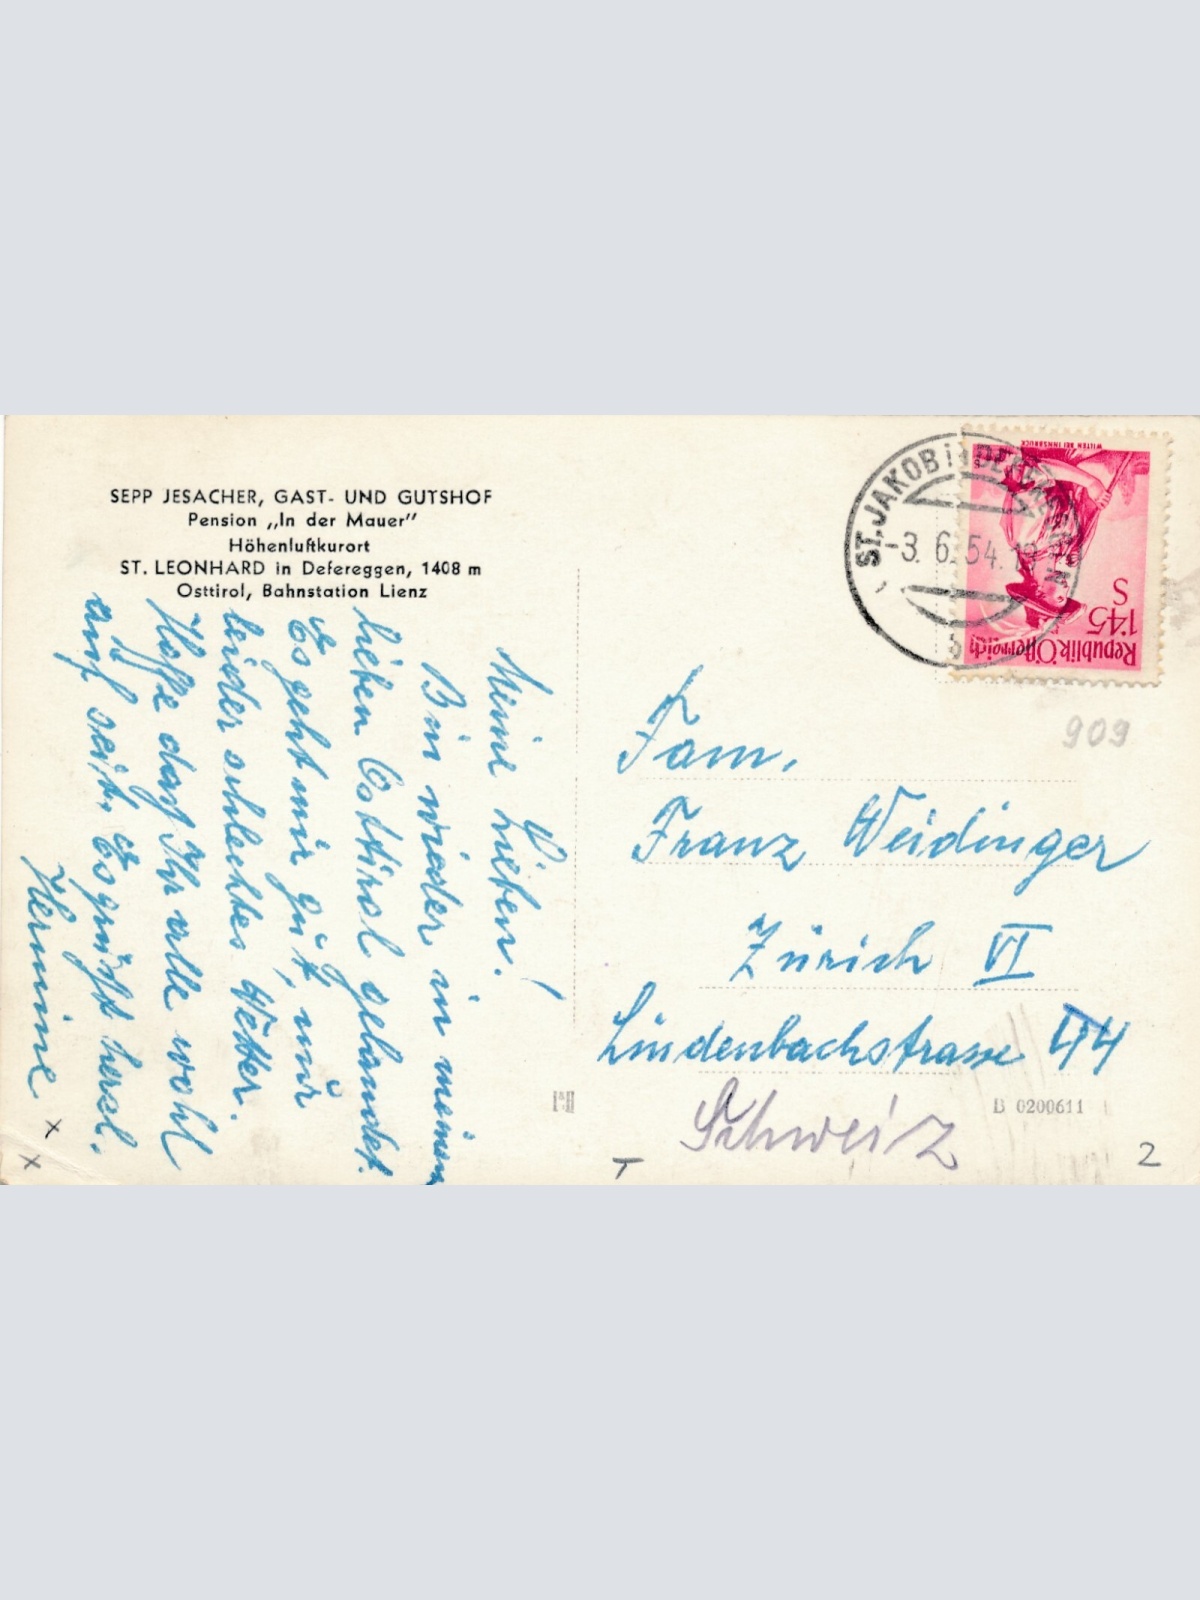 SEPP JESACHER, GAST- UND GUTSHOF
Pension „In der Mauer"
Höhenluftkurort
ST. LEONHARD in Defereggen, 1408 m
Osttirol, Bahnstation Lienz
Meine Lieben!
Bin wieder in meinem
lieben Osttirol gelandet.
Es geht mir gut, nur
leider schlechtes Wetter.
Hoffe daß Ihr alle wohl
auf seit. Es grüßt herzl.
Hermine
ST. JAKOB i. DEFEREGGEN
-3. 6. 54.
b
WILTEN BEI INNSBRUCK
1.45
S
Republik Österreich
909
Fam.
Franz Weidinger
Zürich VI
Lindenbachstrasse 44
Schweiz
B 0200611
2